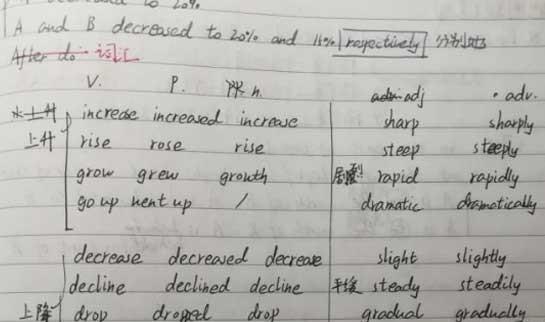 to 20%
A and B decreased to 20% and 15% respectively 分别地
After do 词汇
V. P. n. adj adv.
increase increased increase sharp sharply
上升 rise rose rise steep steeply
grow grew growth 剧烈 rapid rapidly
go up went up / dramatic dramatically
decrease decreased decrease slight slightly
decline declined decline 平缓 steady steadily
上降 drop dropped drop gradual gradually